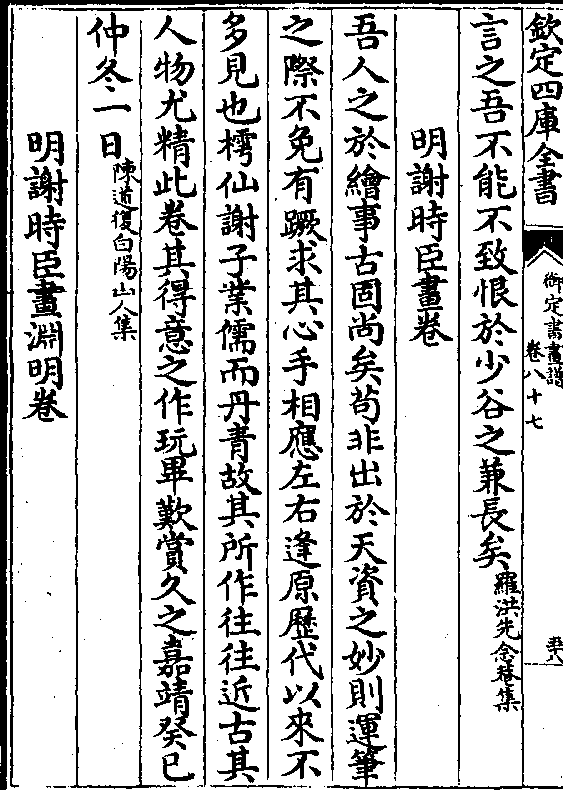 欽定四庫全書
御定書畫譜
卷八十七
言之吾不能不致恨於少谷之兼長矣羅洪先念菴集
明謝時臣畫卷
吾人之於繪事古固尚矣苟非出於天資之妙則運筆
之際不免有蹶求其心手相應左右逢原歷代以來不
多見也樗仙謝子業儒而丹青故其所作往往近古其
人物尤精此卷其得意之作玩畢歎賞久之嘉靖癸巳
仲冬一日陳道復白陽山人集
明謝時臣畫淵明卷